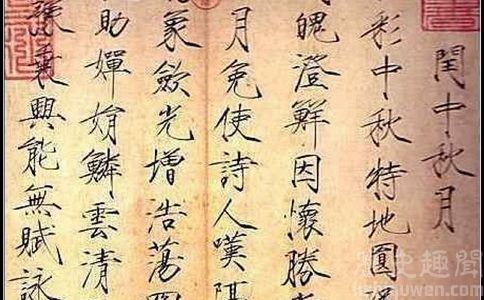 閏中秋月
彩中秋特地圓
魄澄鮮因懷勝
月免使詩人嘆隔
象斂光增浩蕩
助嬋娟鱗雲清
乘興能無賦詠
史趣聞